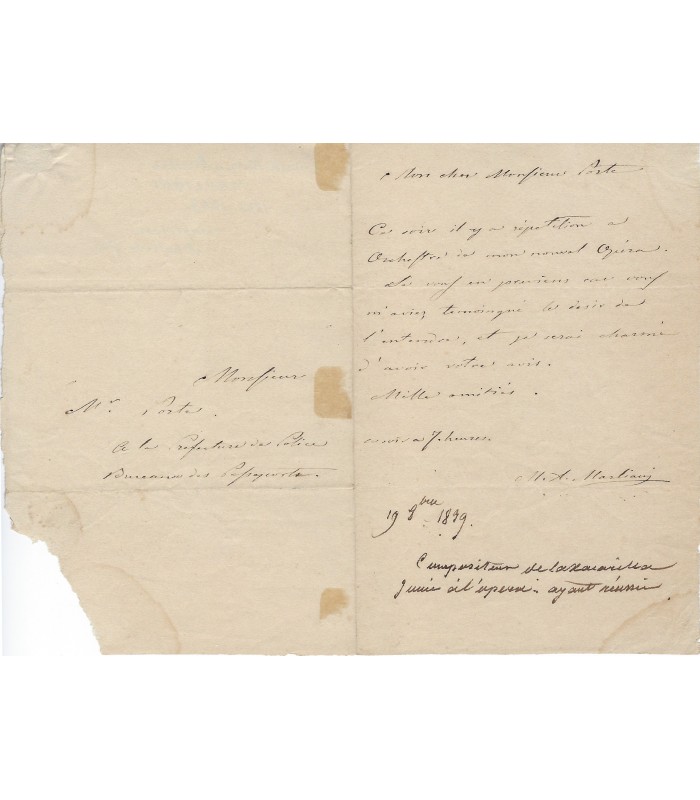 Monsieur
Mr. Porte.
A la Prefecture de Police
Bureaux des Passeports.
Mon cher Monsieur Porte
Ce soir il y a répétition a
Orchestre de mon nouvel Opéra.
Je vous en previens car vous
m'aviez temoingné le desir de
l'entendre, et je serai charmé
d'avoir votre avis.
Mille amitiés.
ce soir a 7 heures.
M. A. Marliani
19 8bre 1839.
Compositeur de la Xacarilla
Jouée à l'opera - ayant réussie